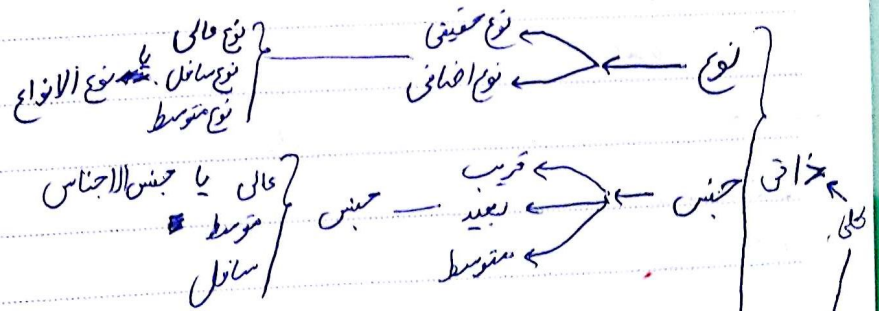 نوع ← نوع حقیقی
نوع اضافی
نوع عالی
نوع سافل یا نوع الانواع
نوع متوسط
کلی
ذاتی
جنس ← قریب
بعید
متوسط
جنس
عالی یا جنس الاجناس
متوسط
سافل